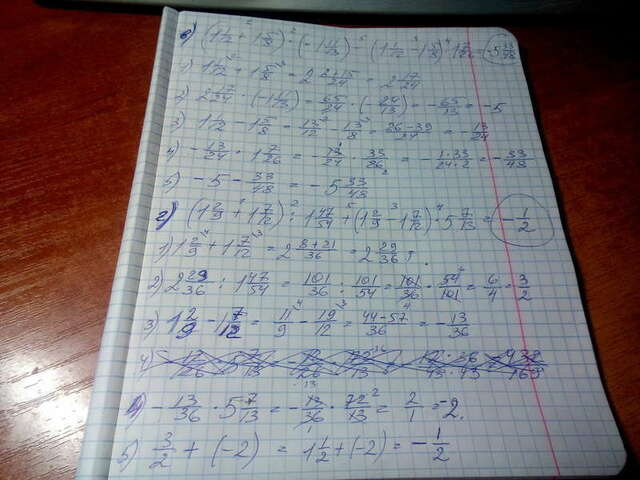 в) (1 1/12 + 1 5/8) · (-1 11/13) - (1 1/12 - 1 5/8) · 1 7/26 = -5 33/48
1) 1 1/12 + 1 5/8 = 2 2+15/24 = 2 17/24
2) 2 17/24 · (-1 11/13) = 65/24 · (-24/13) = -65/13 = -5
3) 1 1/12 - 1 5/8 = 13/12 - 13/8 = 26-39/24 = -13/24
4) -13/24 · 1 7/26 = -13/24 · 33/26 = -1·33/24·2 = -33/48
5) -5 - 33/48 = -5 33/48
г) (1 2/9 + 1 7/12) : 1 47/54 + (1 2/9 - 1 7/12) · 5 7/13 = -1/2
1) 1 2/9 + 1 7/12 = 2 8+21/36 = 2 29/36
2) 2 29/36 : 1 47/54 = 101/36 : 101/54 = 101/36 · 54/101 = 6/4 = 3/2
3) 1 2/9 - 1 7/12 = 11/9 - 19/12 = 44-57/36 = -13/36
4)
4) -13/36 · 5 7/13 = -13/36 · 72/13 = 2/1 = -2.
5) 3/2 + (-2) = 1 1/2 + (-2) = -1/2